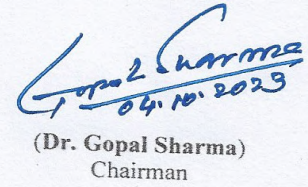 Gopal Sharma
04.10.2023
(Dr. Gopal Sharma)
Chairman